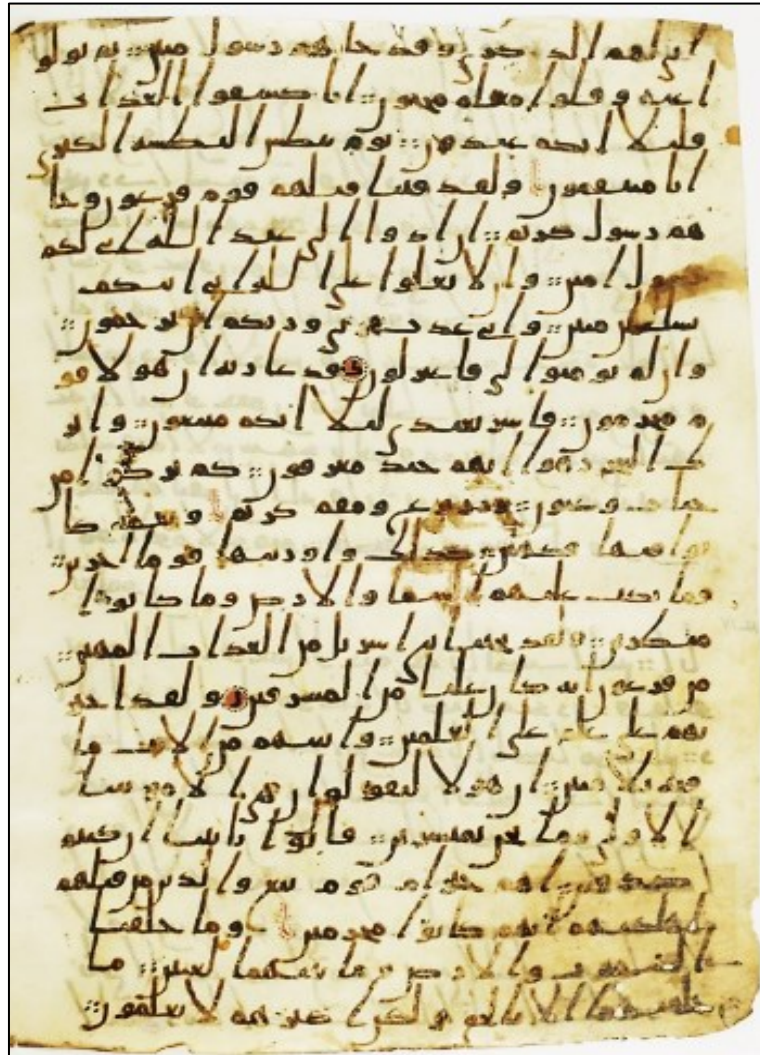 انى لهم الذكرى وقد جاهم رسول مبين ؛ ثم تولو
ا عنه وقلوا معلم مجنون ؛ انا كشفوا العذاب
قليلا انكم عيدون ؛ يوم نبطش البطشه الكبرى
انا منتقمون ولقد فتنا قبلهم قوم فرعون وجا
هم رسول كريم ؛ ان ادوا الى عبد الله انى لكم
رسول امين ؛ وان لا تعلوا على الله انى اتيكم
بسلطن مبين ؛ وانى عذت بربى وربكم ان ترجمون ؛
وان لم تومنوا لى فاعتزلون فدعا ربه ان هولا قو
م مجرمون ؛ فاسر بعبدى ليلا انكم متبعون ؛ واتر
ك البحر رهوا انهم جند مغرقون ؛ كم تركوا من
جنت وعيون ؛ وزروع ومقم كريم ونعمه كا
نوا فيها فكهين ؛ كذلك واورثنها قوما اخرين ؛
فما بكت عليهم السما والارض وما كانوا
منظرين ؛ ولقد نجينا بنى اسريل من العذاب المهين ؛
من فرعون انه كان عليا من المسرفين ولقد اختر
نهم على علم على العلمين ؛ واتينهم من الايت ما
فيه بلا مبين ؛ ان هولا ليقولون ان هى الا موتتنا
الاولى وما نحن بمنشرين ؛ فاتوا بابينا ان كنتم
صدقين ؛ اهم خير ام قوم تبع والذين من قبلهم
اهلكنهم انهم كانوا مجرمين وما خلقنا
السموت والارض وما بينهما لعبين ؛ ما
خلقنهما الا بالحق ولكن اكثرهم لا يعلمون ؛